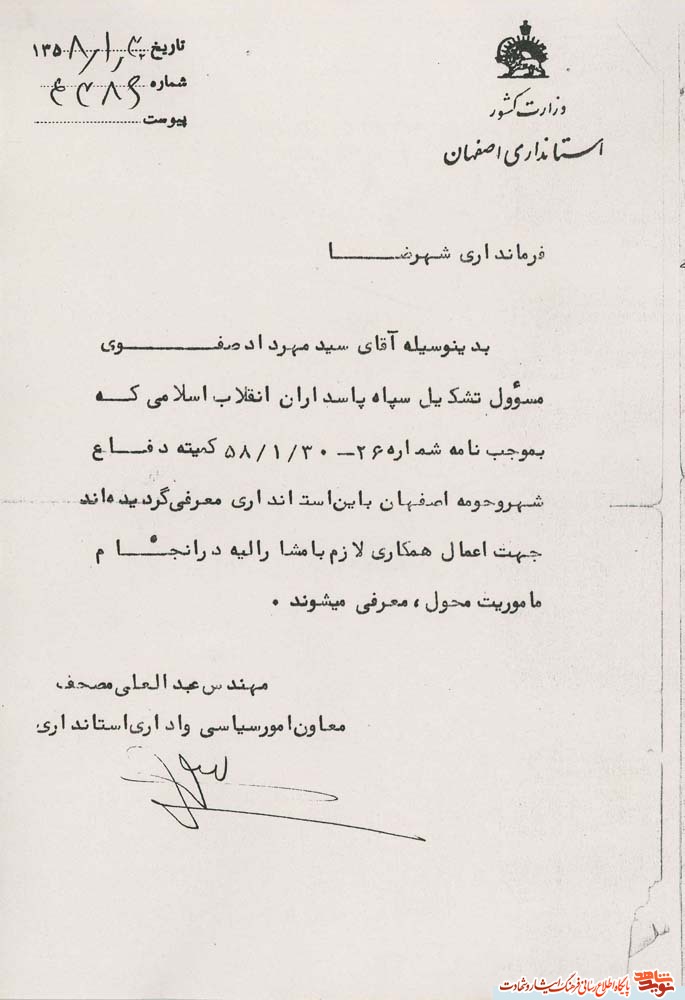 وزارت کشور
استانداری اصفهان
تاریخ ۱۳۵۸
شماره
پیوست
فرمانداری شهرضا
بدینوسیله آقای سید مهرداد صفوی
مسؤول تشکیل سپاه پاسداران انقلاب اسلامی که
بموجب نامه شماره ۲۶ – ۵۸/۱/۳۰ کمیته دفاع
شهروحومه اصفهان باین استانداری معرفی گردیده اند
جهت اعمال همکاری لازم بامشارالیه درانجام
ماموریت محول ، معرفی میشوند .
مهندس عبدالعلی مصحف
معاون امورسیاسی واداری استانداری
نوید شاهد
پایگاه اطلاع رسانی فرهنگ ایثار و شهادت